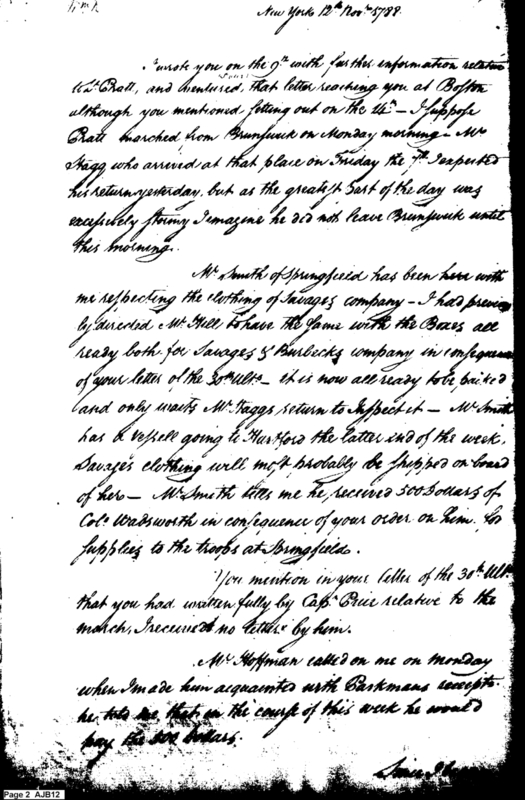 New York 12th Novr. 1788.
I wrote you on the 9th with further information relative
Lt. Pratt, and ventured, that letter reaching you at Boston
although you mentioned setting out on the 14th — I suppose
Pratt marched from Brunswick on Monday morning — Mr
Stagg who arrived at that place on Friday the 7th. I expected
his return yesterday, but as the greatest part of the day was
excessively stormy I imagine he did not leave Brunswick until
this morning.
Mr Smith of Springfield has been here with
me respecting the clothing of Savages company — I had previous
ly directed Mr Hill to have the same with the Boxes all
ready both for Savages & Burbecks company in consequence
of your letter of the 30th Ulto. — it is now all ready to be packed
and only waits Mr Staggs return to Inspect it — Mr Smith
has a vessell going to Hartford the latter end of the week,
Savages clothing will most probably be shipped on board
of her — Mr Smith tells me he received 500 Dollars of
Colo. Wadsworth in consequence of your order on him for
supplies to the troops at Springfield.
You mention in your letter of the 30th Ulto.
that you had written fully by Capn. Price relative to the
march, I received no letter by him.
Mr Hoffman called on me on Monday
when I made him acquainted with Parkmans receipts
he told me that in the course of this week he would
pay the 300 Dollars.
Page 2 AJB12